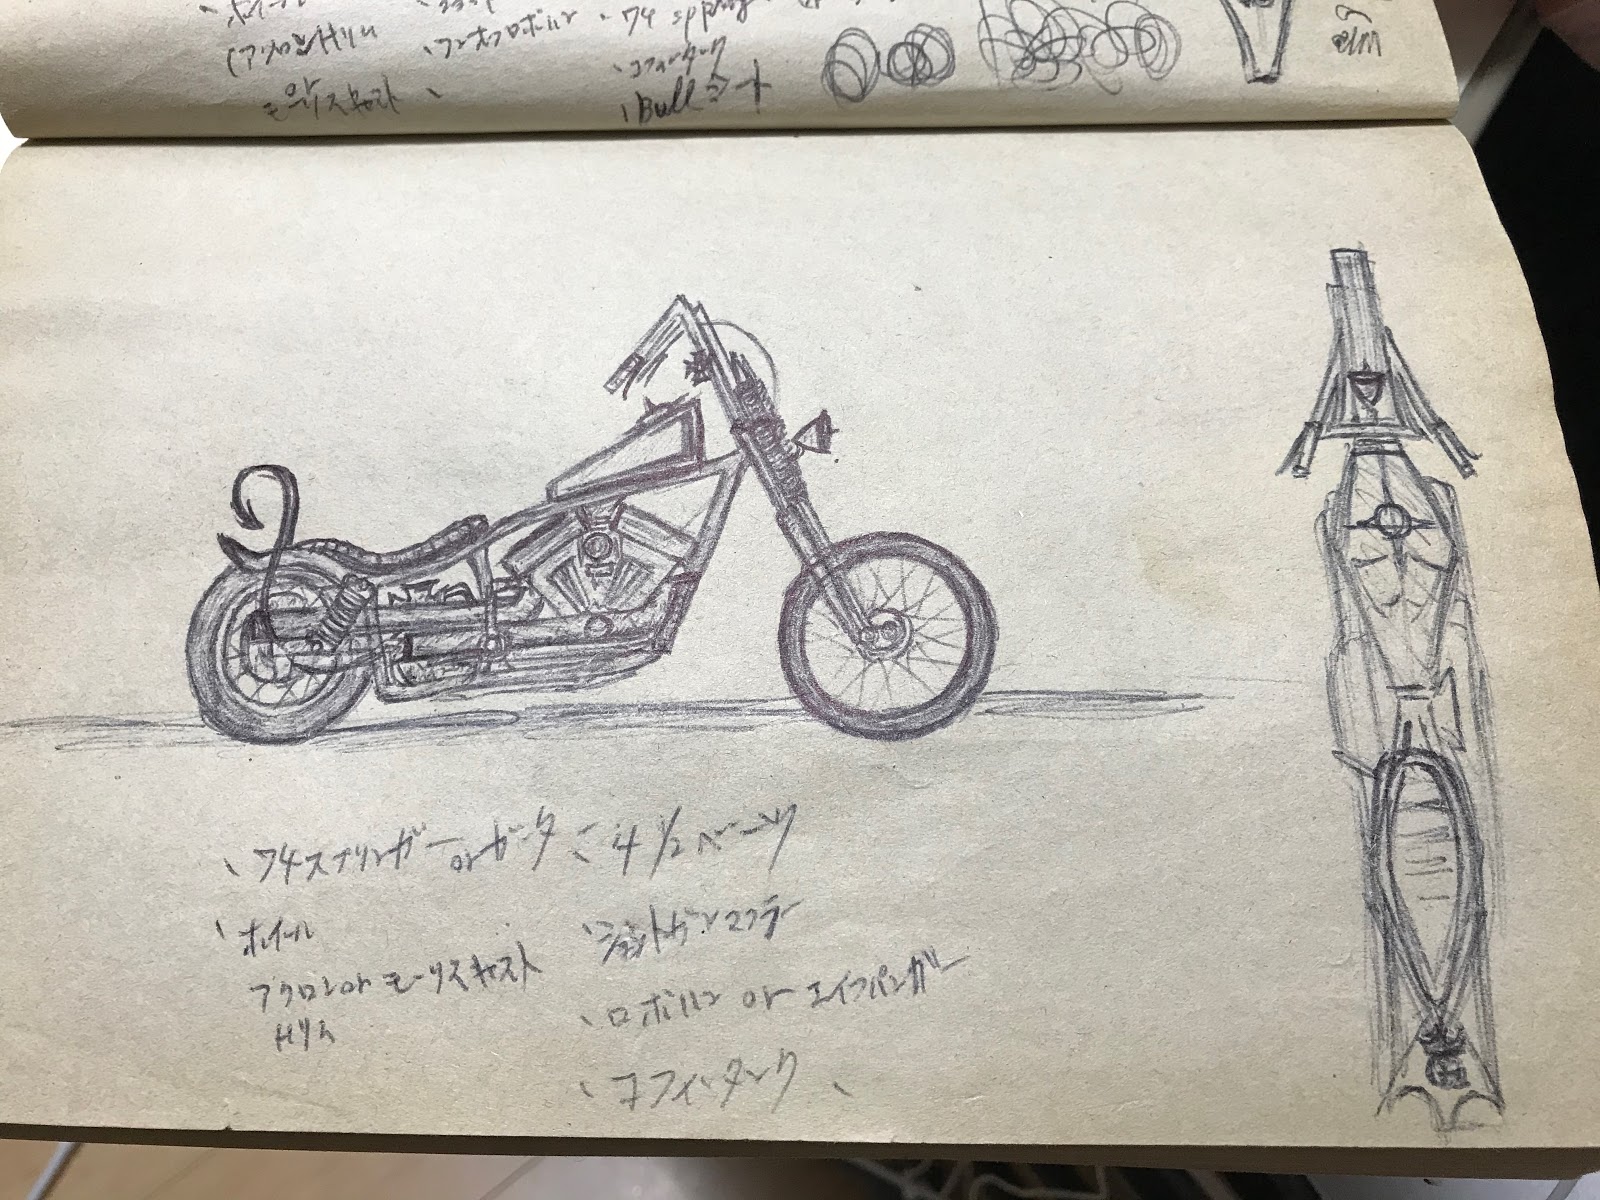 ホイール
(アクロンHリム
モーリスキャスト
、ロボハン
、74 spring
、コフィンタンク
、Bullシート
、74スプリンガー or ガーター
、4 1/2 ベーツ
、ホイール
アクロン or モーリスキャスト
Hリム
、ショットガンマフラー
、ロボハン or エイプハンガー
、コフィンタンク